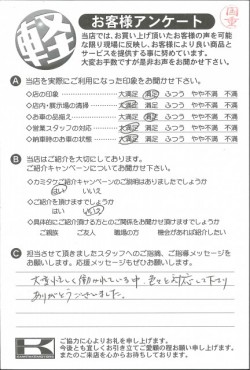 軽
お客様アンケート
当店では、お買い上げ頂いたお客様の声を可能
な限り現場に反映し、お客様により良い商品と
サービスを提供する事に努めています。
大変お手数ですが是非お声をお聞かせ下さい。
A 当店を実際にご利用になった印象をお聞かせ下さい。
◇店の印象 大満足 満足 ふつう やや不満 不満
◇店内・展示場の清掃 大満足 満足 ふつう やや不満 不満
◇お車の品揃え 大満足 満足 ふつう やや不満 不満
◇営業スタッフの対応 大満足 満足 ふつう やや不満 不満
◇納車時のお車の状態 大満足 満足 ふつう やや不満 不満
B 当店はご紹介を大切にしております。
ご紹介キャンペーンについてお聞かせ下さい。
◇カミタケご紹介キャンペーンのご説明はありましたでしょうか
はい いいえ
◇ご紹介を頂けますでしょうか
はい いいえ
◇具体的にご紹介頂ける方とのご関係をお聞かせ頂けますでしょうか
ご親族 ご友人 職場の方 機会があれば紹介したい
C 担当させて頂きましたスタッフへのご指摘、ご指導メッセージを
お願いします。応援メッセージもぜひお願いします。
大変忙しく働かれている中、色々と対応して下さり
ありがとうございました。
K
ご協力に心よりお礼を申し上げます。
今後とも宜しくお引き立てご愛顧の程お願い申し上げます。
またのご来店を心からお待ちしております。